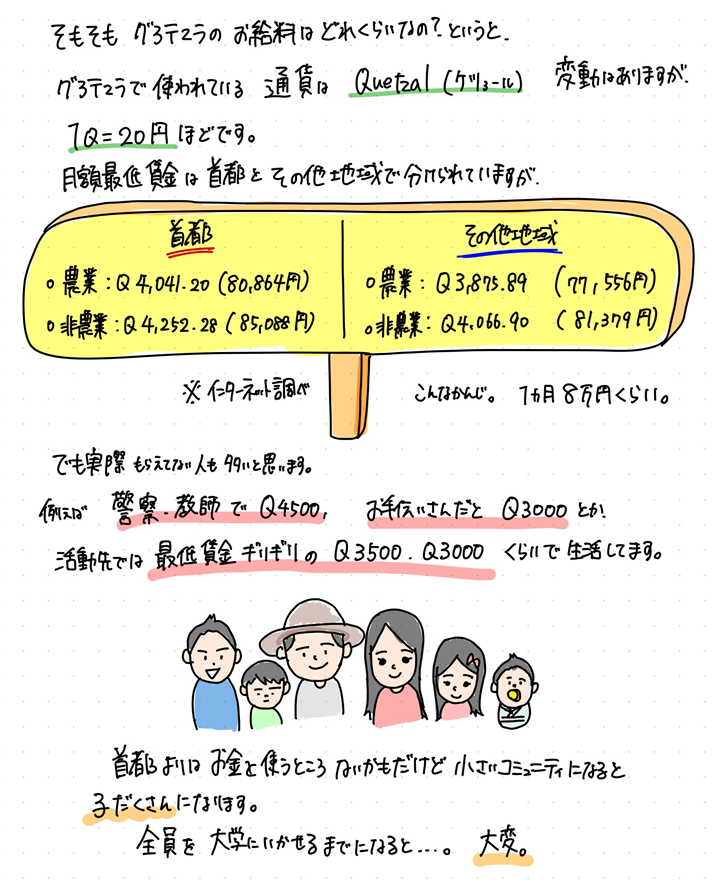 そもそも グアテマラの お給料は どれくらいなの？というと、
グアテマラで 使われている 通貨は Quetzal (ケツァール) 変動はありますが、
1Q=20円 ほどです。
月額最低賃金は 首都と その他地域で 分けられていますが、
首都
○農業：Q 4,041.20 (80,864円)
○非農業：Q 4,252.28 (85,088円)
その他地域
○農業：Q3,875.89 (77,556円)
○非農業：Q4,066.90 (81,379円)
※インターネット調べ
こんなかんじ。 1ヵ月 8万円くらい。
でも実際 もらえてない人も 多いと思います。
例えば 警察・教師で Q4500, お手伝いさんだと Q3000 とか、
活動先では 最低賃金 ギリギリの Q3500・Q3000 くらいで 生活してます。
首都よりは お金を使うところ ないかもだけど 小さいコミュニティになると
子だくさんになります。
全員を 大学にいかせるまでになると…。 大変。